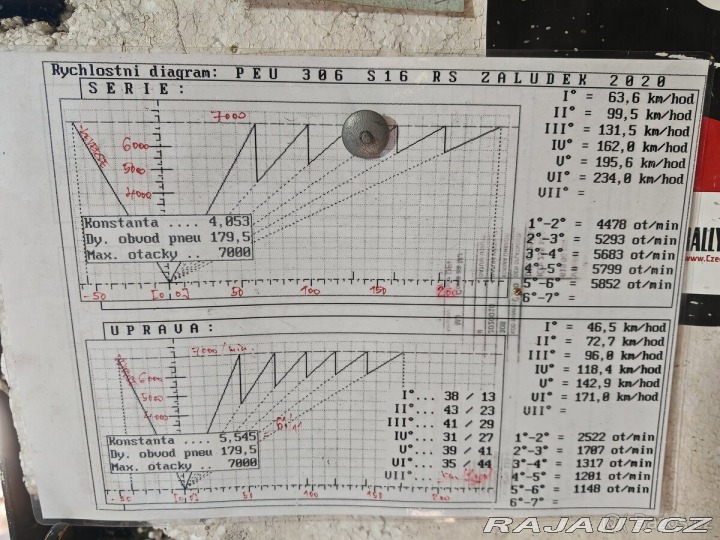 Rychlostni diagram: PEU 306 S16 RS ZALUDEK 2020
SERIE:
I° = 63,6 km/hod
II° = 99,5 km/hod
III° = 131,5 km/hod
IV° = 162,0 km/hod
V° = 195,6 km/hod
VI° = 234,0 km/hod
VII° =
7000
6000
5000
4000
Konstanta .... 4,053
Dy. obvod pneu 179,5
Max. otacky .. 7000
1°-2° = 4478 ot/min
2°-3° = 5293 ot/min
3°-4° = 5683 ot/min
4°-5° = 5799 ot/min
5°-6° = 5852 ot/min
6°-7° =
-50 [0,0] 50 100 150 200
UPRAVA:
I° = 46,5 km/hod
II° = 72,7 km/hod
III° = 96,0 km/hod
IV° = 118,4 km/hod
V° = 142,9 km/hod
VI° = 171,0 km/hod
VII° =
7000/min.
6000
5000
4000
I°... 38 / 13
II°... 43 / 23
III°... 41 / 29
IV°... 31 / 27
V°... 39 / 41
VI°... 35 / 44
VII°..
Konstanta .... 5,545
Dy. obvod pneu 179,5
Max. otacky .. 7000
1°-2° = 2522 ot/min
2°-3° = 1707 ot/min
3°-4° = 1317 ot/min
4°-5° = 1201 ot/min
5°-6° = 1148 ot/min
6°-7° =
-50 [0,0] 50 100 150 200
RALLY
www.Cze
RAJAUT.CZ